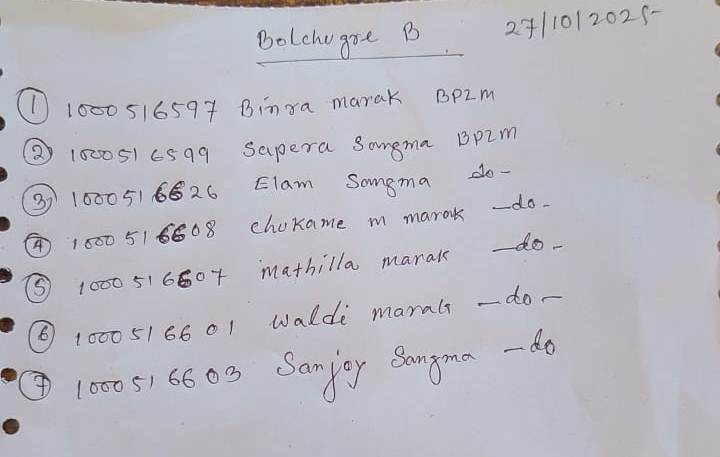 Bolchugre B 27/10/2025
① 1000516597 Binra marak BPLM
② 1000516599 Sapera Sangma BPLM
③ 1000516626 Elam Sangma do-
④ 1000516608 chukame m marak -do-
⑤ 1000516607 mathilla marak -do-
⑥ 1000516601 waldi marak -do-
⑦ 1000516603 Sanjoy Sangma -do